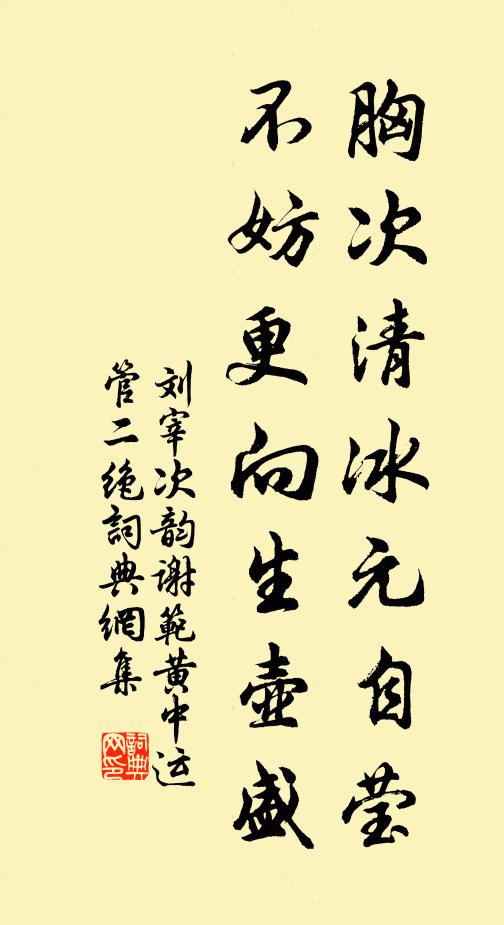 胸次清冰元自莹
不妨更向生壶盛
刘宰次韵谢範黄中运
管二绝詞典網集
詞典网印